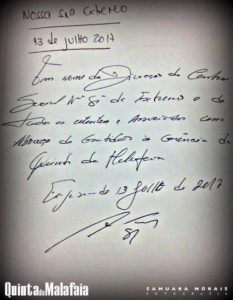 Nossa Srª Extremo
13 de Julho 2017
Em nome da Direcção do Centro
Social Nª Sª de Extremo e de
todos os utentes e Associados com
Abraço de Gratidão à Gerência
Quinta da Malafaia
13 Julho de 2017
Quinta da Malafaia
SAMUARA MORAIS
FOTOGRAFIA